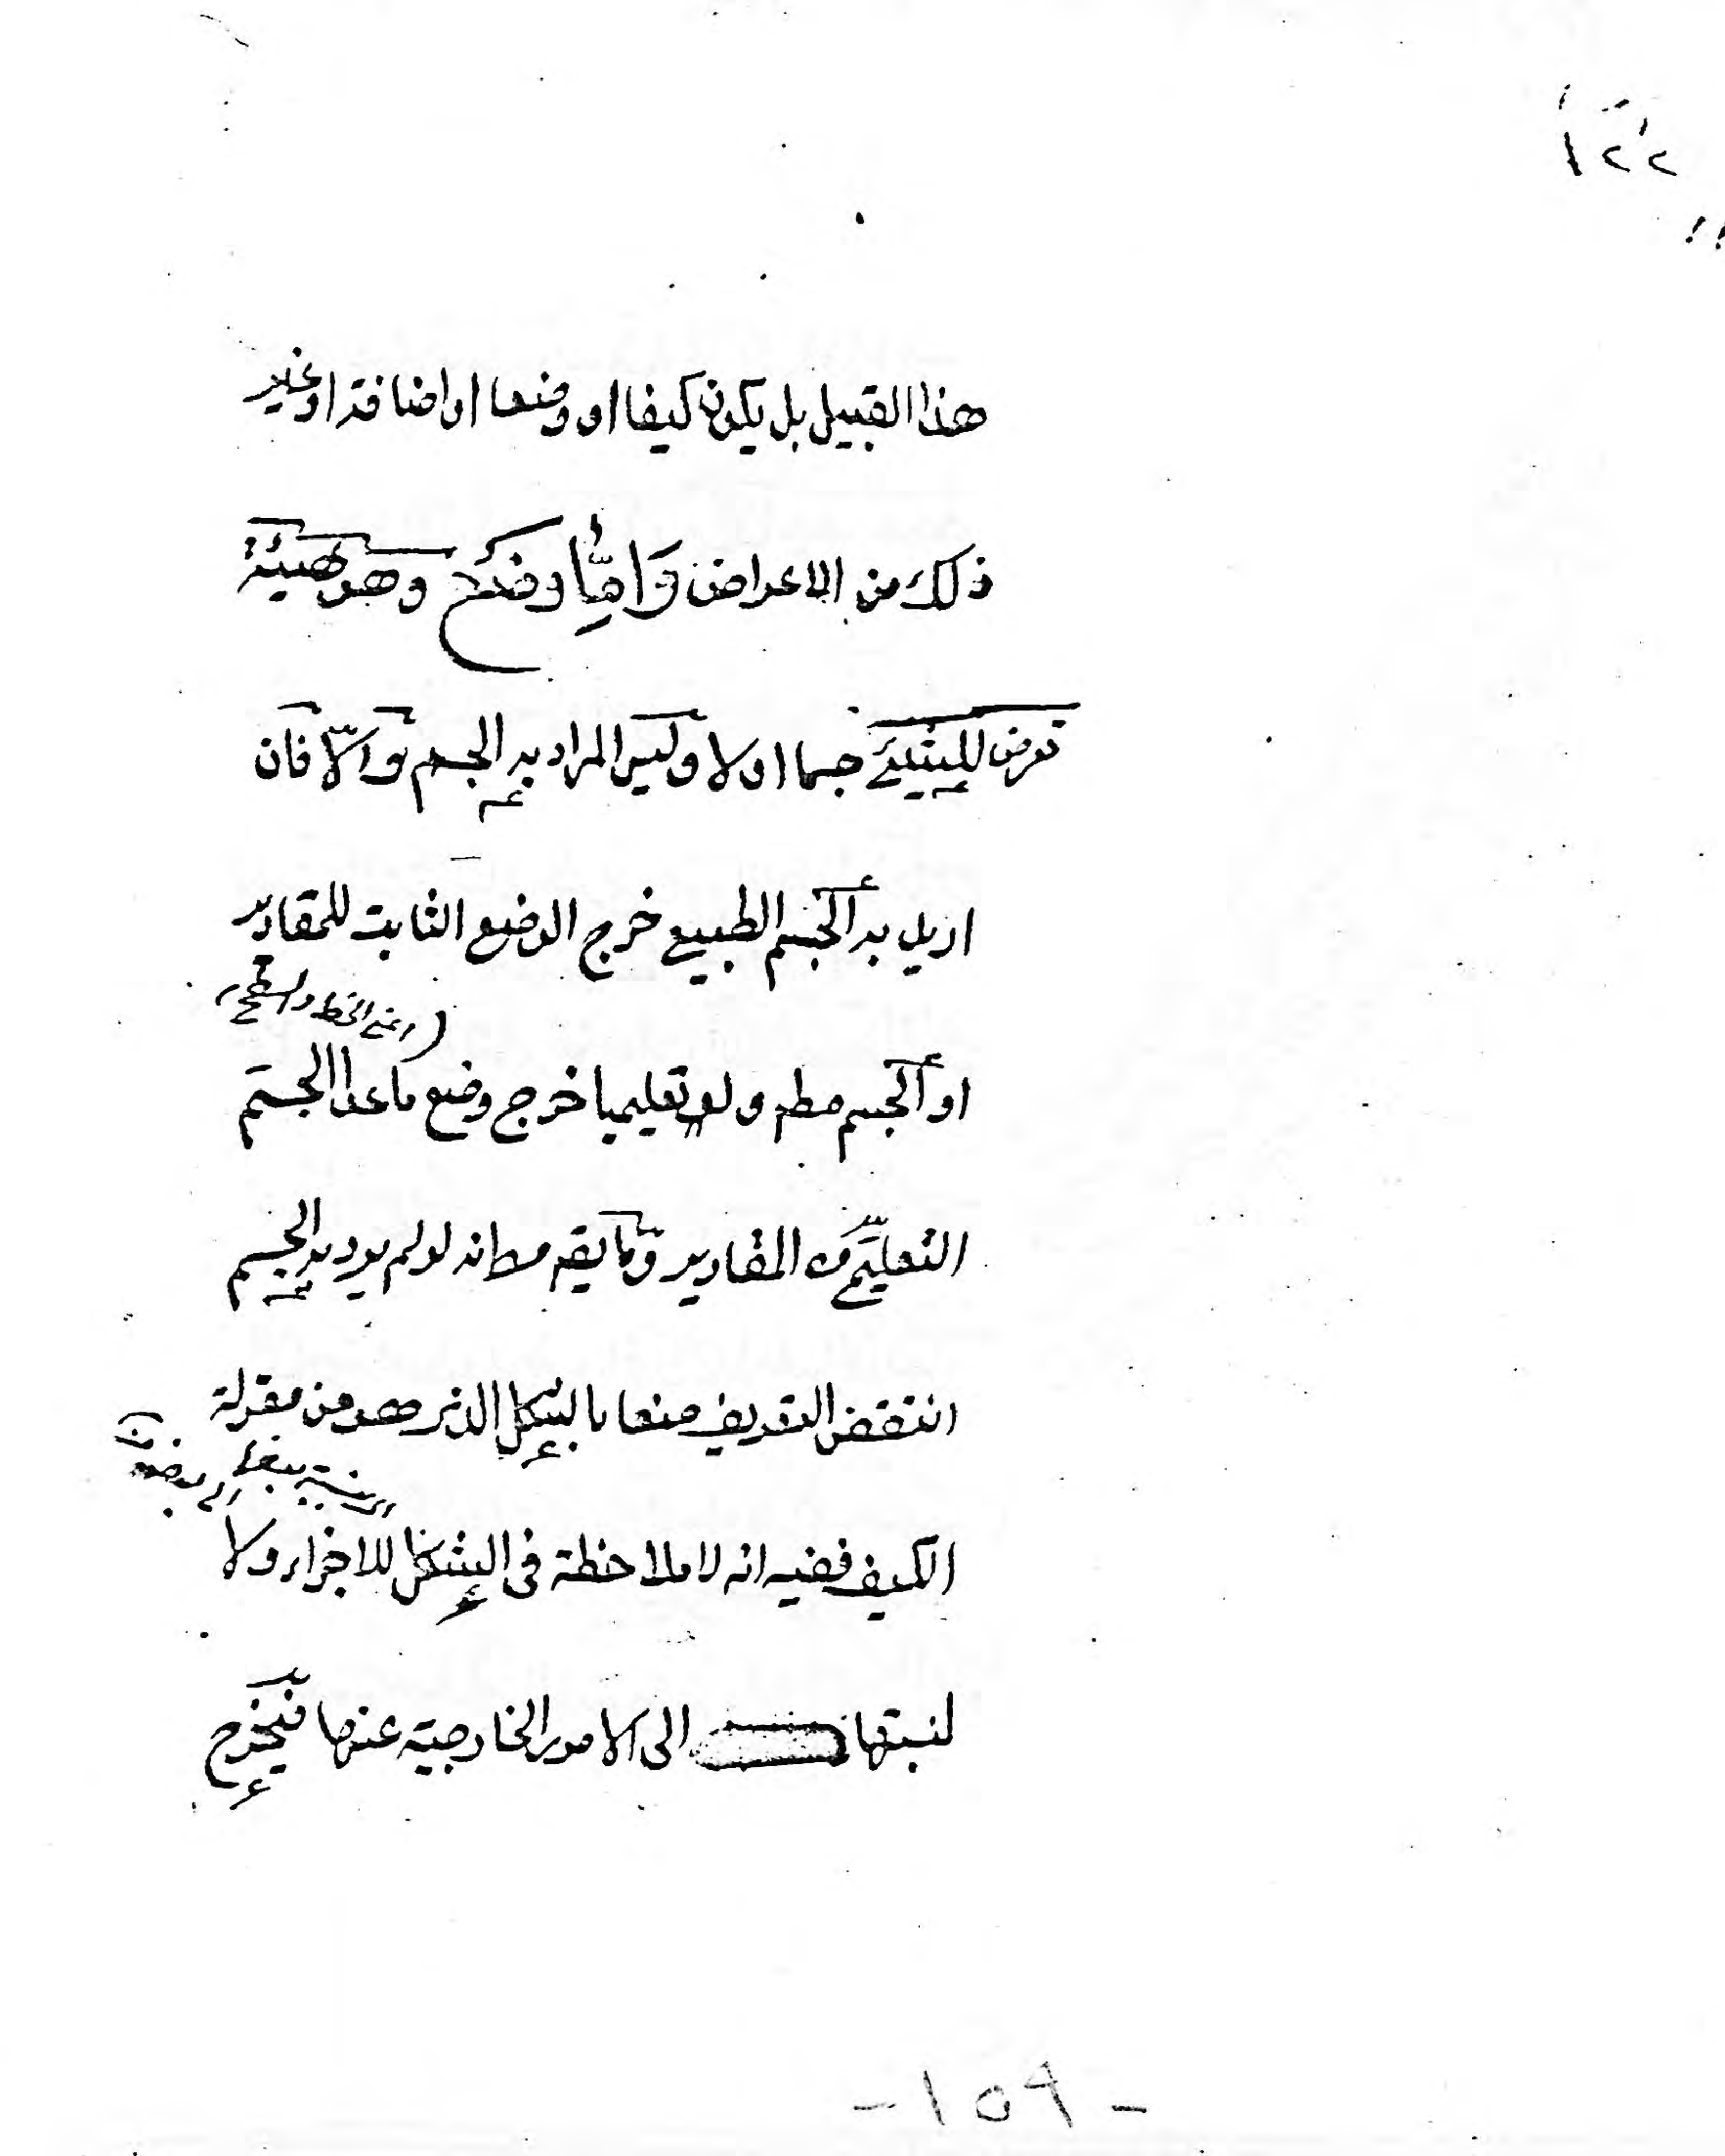 ١٢٢
هذا القبيل بل يكون كيفا او وضعا او اضافة او غير
ذلك من الاعراض وَامَّا وضع وهو هيئة
تعرض للشيئ جسما اولا وليس المراد به الجسم والّا فان
اريد به الجسم الطبيع خرج الوضع الثابت للمقادير
(اعنى الخط والسطح)
او الجسم مطم ولو تعليميا خرج وضع ماعدا الجسم
التعليمّى من المقادير وما يقم من انه لولم يرد به الجسم
انتقض التعريف منعا بالشكل الذى هو من مقولة
الكيف ففيه انه لا ملاحظة فى الشكل للاجزاء ولا
لنسبتها الى الامور الخارجية عنها فيخرج
- ١٥٩ -